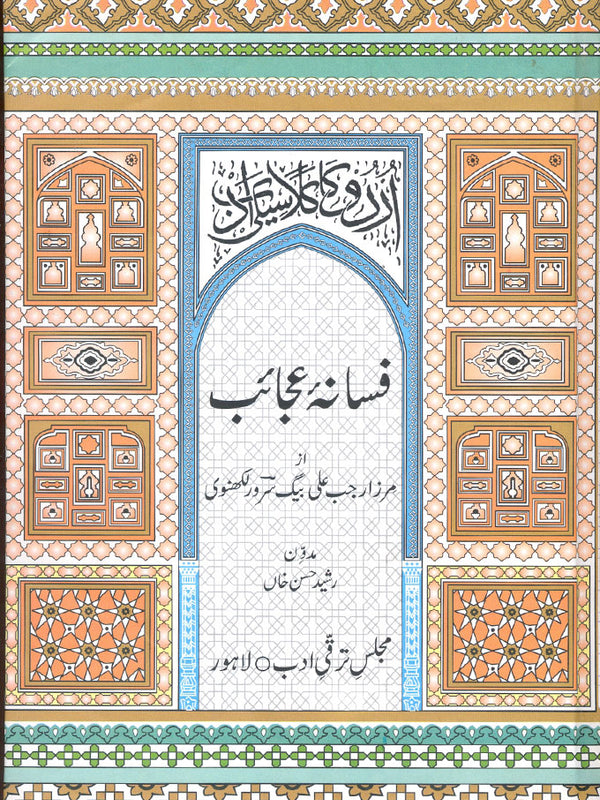 اُردو کا کلاسیکی ادب
فسانۂ عجائب
از
مرزا رجب علی بیگ سرور لکھنوی
مدوّن
رشید حسن خاں
مجلس ترقیِ ادب ○ لاہور